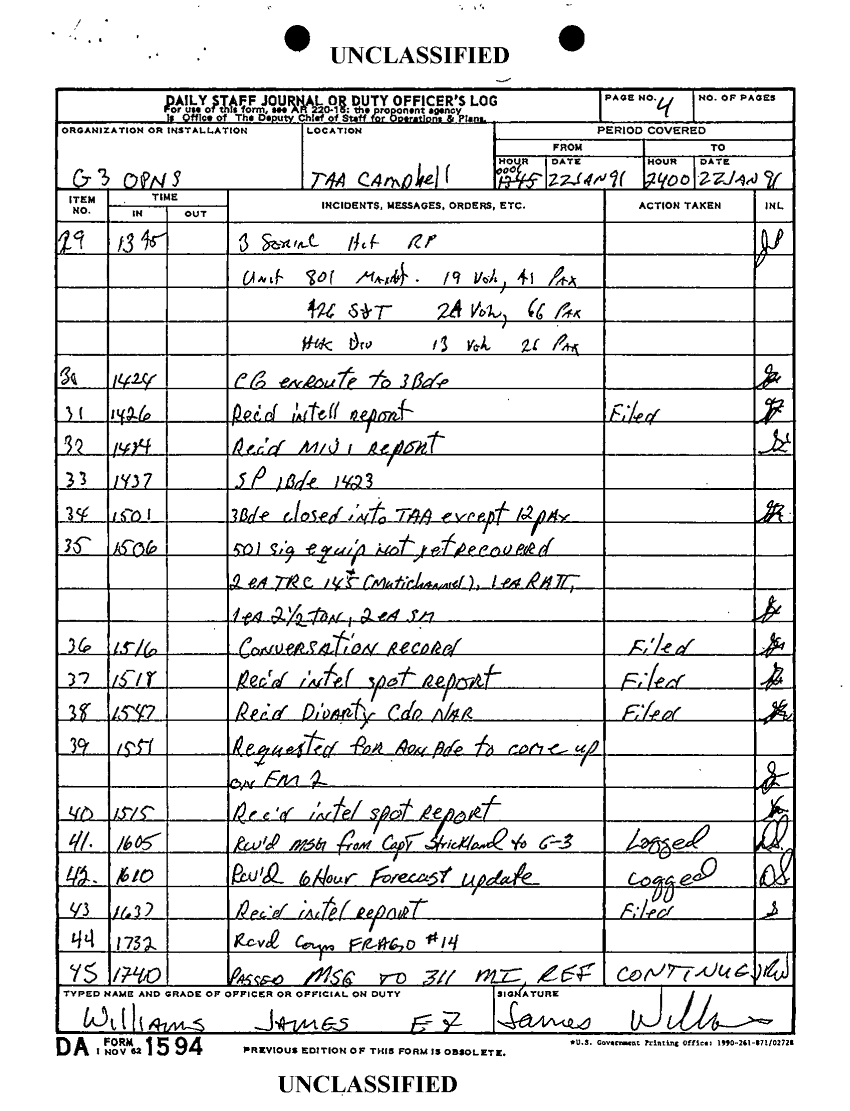 UNCLASSIFIED
DAILY STAFF JOURNAL OR DUTY OFFICER'S LOG
For use of this form, see AR 220-15: the proponent agency
is Office of The Deputy Chief of Staff for Operations & Plans.
PAGE NO. 4
NO. OF PAGES
ORGANIZATION OR INSTALLATION
LOCATION
PERIOD COVERED
FROM
TO
HOUR
DATE
HOUR
DATE
G3 OPNS
TAA Campbell
0001
1345
22JAN91
2400
22JAN91
ITEM NO.
TIME
IN
OUT
INCIDENTS, MESSAGES, ORDERS, ETC.
ACTION TAKEN
INL
29 1345 3 Serial Hit RP
Unit 801 Maint. 19 Veh, 41 PAX
426 S&T 24 Veh, 66 PAX
Div 13 Veh 26 PAX
30 1424 CG enroute to 3Bde
31 1426 Rec'd intell report Filed
32 1434 Rec'd MIJI Report
33 1437 SP 1Bde 1423
34 1501 3Bde closed into TAA except 12 pax
35 1506 501 sig equip not yet recovered
2 ea TRC 145 (Mutichannel), 1 ea RATT,
1 ea 2½ TON, 2 ea SM
36 1516 CONVERSATION RECORD Filed
37 1518 Rec'd intel spot report Filed
38 1547 Rec'd Divarty Cdr NAR Filed
39 1551 Requested for Bde to come up
on FM 2
40 1515 Rec'd intel spot Report
41. 1605 Rcv'd MSG from Capt Strickland to G-3 Logged DS
42. 1610 Rcv'd 6 Hour Forecast update Logged DS
43 1637 Rec'd intel report Filed
44 1732 Rcvd Corps FRAGO #14
45 1740 PASSED MSG TO 311 MI, REF CONTINUED JRW
TYPED NAME AND GRADE OF OFFICER OR OFFICIAL ON DUTY
SIGNATURE
Williams JAMES E7
James Williams
DA FORM 1 NOV 62 1594
PREVIOUS EDITION OF THIS FORM IS OBSOLETE.
*U.S. Government Printing Office: 1990-261-871/02728
UNCLASSIFIED